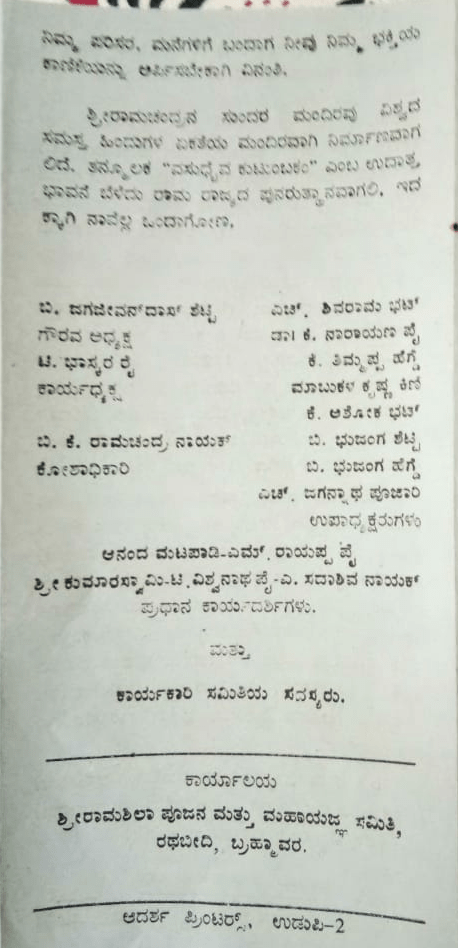 ನಿಮ್ಮ ಪರಿಸರ, ಮನೆಗಳಿಗೆ ಬಂದಾಗ ನೀವು ನಿಮ್ಮ ಭಕ್ತಿಯ
ಕಾಣಿಕೆಯನ್ನು ಅರ್ಪಿಸಬೇಕಾಗಿ ವಿನಂತಿ.
ಶ್ರೀರಾಮಚಂದ್ರನ ಸುಂದರ ಮಂದಿರವು ವಿಶ್ವದ
ಸಮಸ್ತ ಹಿಂದುಗಳ ಏಕತೆಯ ಮಂದಿರವಾಗಿ ನಿರ್ಮಾಣವಾಗ
ಲಿದೆ. ತನ್ಮೂಲಕ "ವಸುಧೈವ ಕುಟುಂಬಕಂ" ಎಂಬ ಉದಾತ್ತ
ಭಾವನೆ ಬೆಳೆದು ರಾಮ ರಾಜ್ಯದ ಪುನರುತ್ಥಾನವಾಗಲಿ. ಇದ
ಕ್ಕಾಗಿ ನಾವೆಲ್ಲ ಒಂದಾಗೋಣ.
ಬಿ. ಜಗಜೀವನ್‌ದಾಸ್ ಶೆಟ್ಟಿ
ಗೌರವ ಅಧ್ಯಕ್ಷ
ಟಿ. ಭಾಸ್ಕರ ರೈ
ಕಾರ್ಯಧ್ಯಕ್ಷ
ಬಿ. ಕೆ. ರಾಮಚಂದ್ರ ನಾಯಕ್
ಕೋಶಾಧಿಕಾರಿ
ಎಚ್. ಶಿವರಾಮ ಭಟ್
ಡಾ। ಕೆ. ನಾರಾಯಣ ಪೈ
ಕೆ. ತಿಮ್ಮಪ್ಪ ಹೆಗ್ಡೆ
ಮಾಬುಕಳ ಕೃಷ್ಣ ಕಿಣಿ
ಕೆ. ಅಶೋಕ ಭಟ್
ಬಿ. ಭುಜಂಗ ಶೆಟ್ಟಿ
ಬಿ. ಭುಜಂಗ ಹೆಗ್ಡೆ
ಎಚ್. ಜಗನ್ನಾಥ ಪೂಜಾರಿ
ಉಪಾಧ್ಯಕ್ಷರುಗಳು
ಆನಂದ ಮಟಪಾಡಿ-ಎಮ್. ರಾಯಪ್ಪ ಪೈ
ಶ್ರೀ ಕುಮಾರಸ್ವಾಮಿ-ಟಿ. ವಿಶ್ವನಾಥ ಪೈ-ಎ. ಸದಾಶಿವ ನಾಯಕ್
ಪ್ರಧಾನ ಕಾರ್ಯದರ್ಶಿಗಳು.
ಮತ್ತು
ಕಾರ್ಯಕಾರಿ ಸಮಿತಿಯ ಸದಸ್ಯರು.
ಕಾರ್ಯಾಲಯ
ಶ್ರೀರಾಮಶಿಲಾ ಪೂಜನ ಮತ್ತು ಮಹಾಯಜ್ಞ ಸಮಿತಿ,
ರಥಬೀದಿ, ಬ್ರಹ್ಮಾವರ.
ಆದರ್ಶ ಪ್ರಿಂಟರ್ಸ್, ಉಡುಪಿ-2